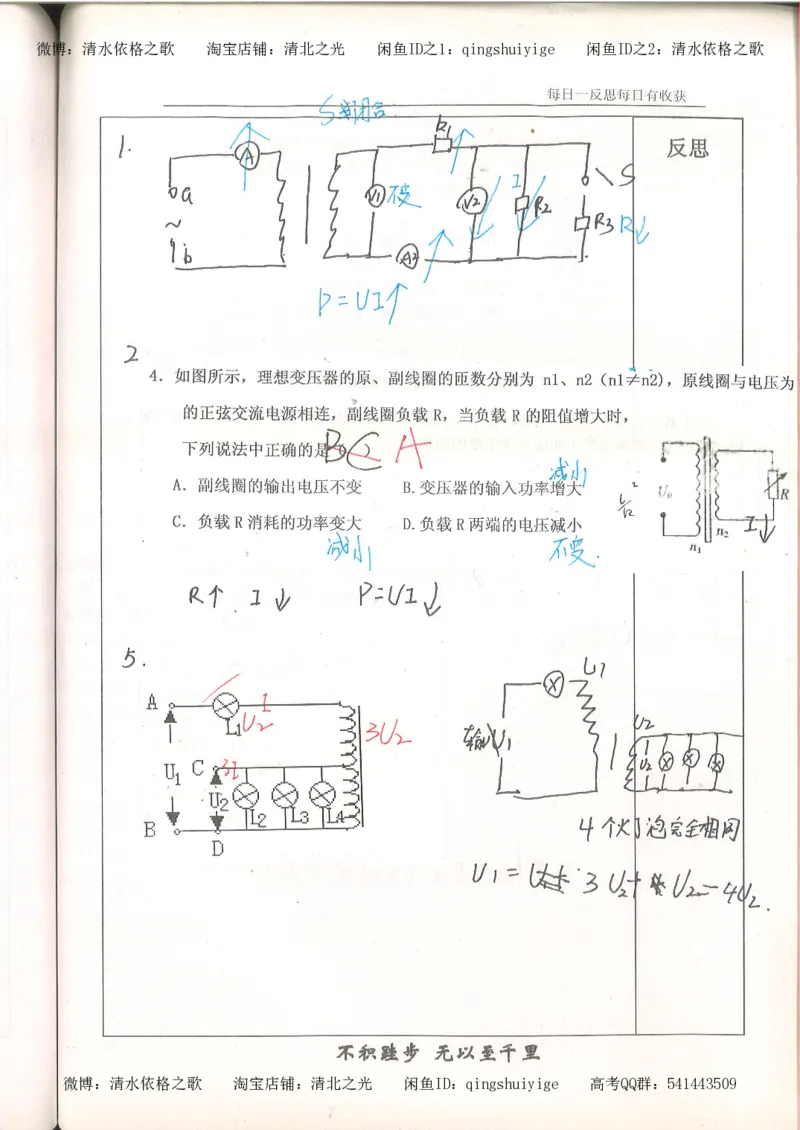 微博：清水依格之歌 淘宝店铺：清北之光 闲鱼ID之1：qingshuiyige 闲鱼ID之2：清水依格之歌
每日一反思每日有收获
S 闭合
反思
1.
R1
A
a
~
b
V1 不变
V2
I
R2
S
R3 R↓
A2
P=UI↑
2
4. 如图所示，理想变压器的原、副线圈的匝数分别为 n1、n2（n1≠n2)，原线圈与电压为
的正弦交流电源相连，副线圈负载 R，当负载 R 的阻值增大时，
下列说法中正确的是 BC A
减小
A. 副线圈的输出电压不变 B.变压器的输入功率增大
U₀ R
C. 负载 R 消耗的功率变大 D.负载 R 两端的电压减小
I↓
n₁ n₂
减小 不变.
R↑ . I↓ P=UI↓
5.
A L1 U2 I
3U2
U1 C 3I
U2
L2 L3 L4
B
D
U1
输入U1
U2
U2
4个灯泡完全相同
U1= 3U2+U2=4U2.
不积跬步 无以至千里
微博：清水依格之歌 淘宝店铺：清北之光 闲鱼ID：qingshuiyige 高考QQ群：541443509